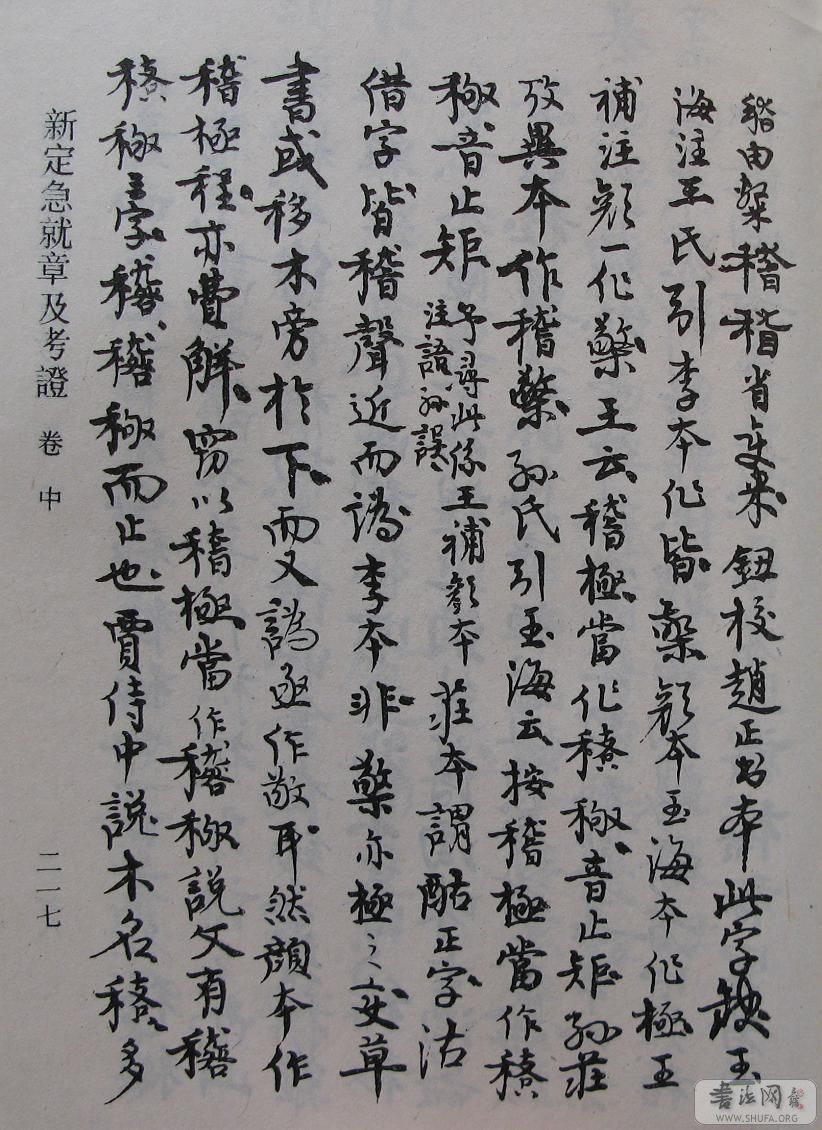 稽由檕稽稽省變米鈕校趙正書本此字缺玉
海注王氏引李本作皆檕顏本玉海本作極王
補注顏一作檠王云稽極當作𥡴𥞇音止矩孫莊
攷異本作稽檠孫氏引玉海云按稽極當作𥡴
𥞇音止矩予尋此係王補顏本注語孫誤莊本謂酤正字沽
借字皆稽聲近而譌李本非檠亦極之變草
書或移木旁於下而又譌亟作敬耳然顏本作
稽極程亦費解竊以稽極當作𥢔𥞇說文有𥢔
𥡴𥞇三字𥢔𥢔𥞇而止也賈侍中說木名𥡴多
新定急就章及考證 卷中 二一七
書法网
WWW.SHUFA.ORG